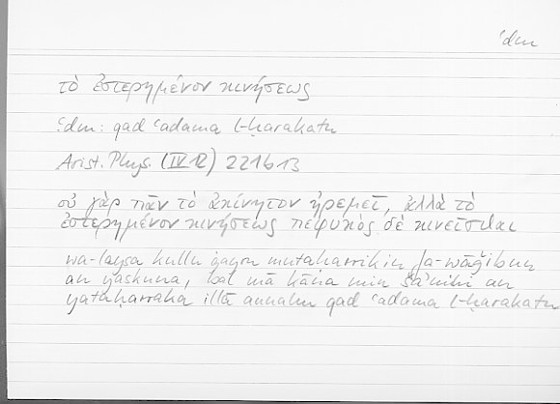 ʿdm
τὸ ἐστερημένον κινήσεως
ʿdm: qad ʿadama l-ḥarakata
Arist. Phys. (IV 12) 221b13
οὐ γὰρ πᾶν τὸ ἀκίνητον ἠρεμεῖ, ἀλλὰ τὸ
ἐστερημένον κινήσεως πεφυκὸς δὲ κινεῖσθαι
wa-laysa kullu ġayri mutaḥarrikin fa-wāǧibun
an yaskuna, bal mā kāna min šaʾnihī an
yataḥarraka illā annahu qad ʿadama l-ḥarakata